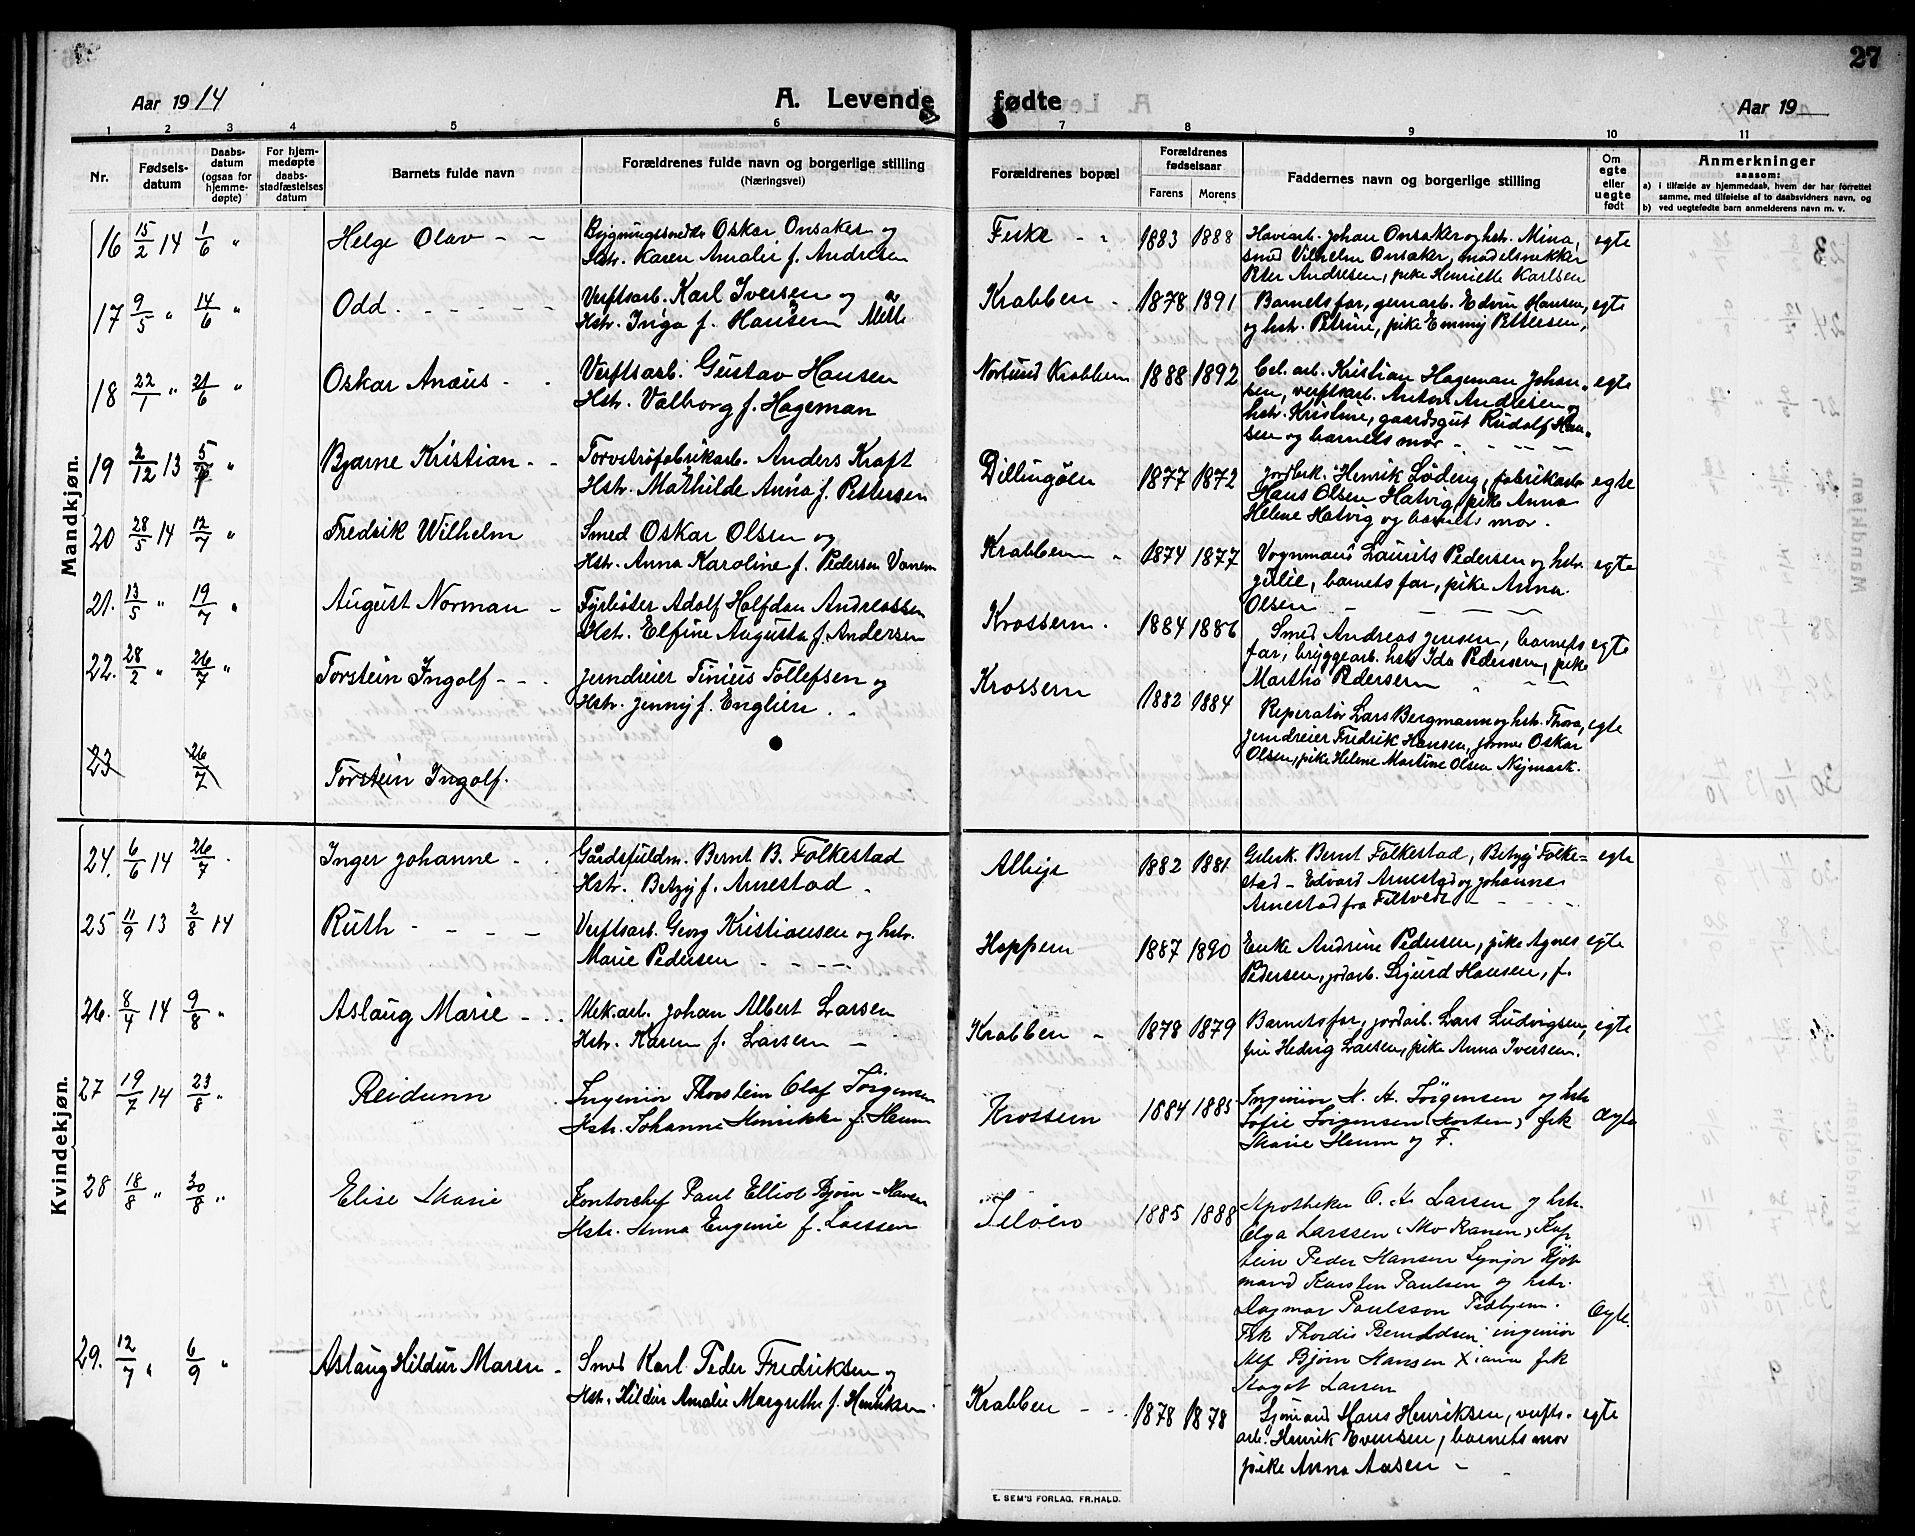 27
Aar 1914
A. Levende fødte
Aar 19
1 2 3 4 5 6 7 8 9 10 11
Nr.
Fødsels-
datum
Daabs-
datum
(ogsaa for
hjemme-
døpte)
For hjem-
medøpte
daabs-
stadfæstelses
datum
Barnets fulde navn
Forældrenes fulde navn og borgerlige stilling
(Næringsvei)
Forældrenes bopæl
Forældrenes
fødselsaar
Farens Morens
Faddernes navn og borgerlige stilling
Om
egte
eller
uegte
født
Anmerkninger
saasom:
a) i tilfælde av hjemmedaab, hvem der har forrettet
samme, med tilføielse af to daabsvidners navn, og
b) ved uegtefødte barn anmelderens navn m. v.
Mandkjøn.
16 15/2 14 1/6 " Helge Olav - -
Oskar Onsaker og
Hstr. Karen Amalie f. Andresen
Feske - " 1883 1888
Havearb. Johan Onsaker og hstr. Mina,
smed Vilhelm Onsaker, modelsnekker
Peter Andresen, pike Henriette Karlsen
egte
17 9/5 " 14/6 " Odd - - - - -
Verftsarb. Karl Iversen og
Hstr. Inga f. Hansen
Krabben - 1878 1891
Barnets far, jernarb. Edvin Hansen,
og hstr. Petrine, pike Emmy Pettersen,
egte
18 22/1 " 21/6 " Oskar Anæus - -
Verftsarb. Gustav Hansen
Hstr. Valborg f. Hageman
Norlund Krabben 1888 1892
Cel. arb. Kristian Hageman Johan-
sen, verftsarb. Anton Andresen og
hstr. Kristine, gaardsgut Rudolf Han-
sen og barnets mor - - - -
egte
19 2/12 13 5/7 " Bjarne Kristian - -
Torvstrøfabrikarb. Anders Kraft
Hstr. Mathilde Anna f. Pettersen
Dillingøen 1877 1872
Jordbrk. Henrik Lødeng, fabrikarb.
Hans Olsen Hatvig, pike Anna
Helene Hatvig og barnets mor.
egte
20 28/5 14 12/7 " Fredrik Wilhelm
Smed Oskar Olsen og
Hstr. Anna Karoline f. Pedersen Vanem
Krabben - 1874 1877
Vognmand Laurits Pedersen og hstr.
Julie, barnets far, pike Anna
Olsen - - - -
egte
21. 13/5 " 19/7 " August Norman -
Fyrbøter Adolf Halfdan Andreassen
Hstr. Elfine Augusta f. Andersen
Krossern. 1884 1886
Smed Andreas Jensen, barnets
far, bryggearb. hstr. Ida Pedersen, pike
Martha Pedersen " - -
egte
22. 28/2 " 26/7 " Torstein Ingolf - - -
Jerndreier Tinius Tollefsen og
Hstr. Jenny f. Englien. .
Krossern 1882 1884
Reperatør Lars Bergmann og hstr. Thora,
jerndreier Fredrik Hansen, Oskar
Olsen, pike Helene Martine Olsen Nymark.
egte
23 26/7 Torstein Ingolf.
Kvindekjøn.
24. 6/6 14 26/7 . Inger Johanne - .
Gårdsfuldm. Bernt B. Folkestad
Hstr. Betzy f. Arnestad -
Alby 1882 1881
Bernt Folkestad, Betzy Folke=
stad - Edvard Arnestad og Johanne
Arnestad fra Filtvedt - - - -
egte
25 11/9 13 2/8 14 Ruth - - - -
Verftsarb. Georg Kristiansen og hstr.
Marie Pedersen - - - -
Hoppern 1887 1890
Enke Andrine Pedersen, pike Agnes
Pedersen, jordarb. Sigurd Hansen, f.
egte
26. 8/4 14 9/8 " Aslaug Marie - . .
Mek.arb. Johan Albert Larsen
Hstr. Karen f. Larsen -
Krabben - 1878 1879
Barnets far, jordarb. Lars Ludvigsen,
fru Hedvig Larsen, pike Anna Iversen.
egte
27 19/7 14 23/8 " Reidunn
Ingeniør Thorstein Olaf Jørgensen
Hstr. Johanne Henrikke f. Heum
Krossern 1884 1885
Ingeniør N. A. Jörgensen og hstr
Sofie Jørgensen (Horten) frk
Marie Heum og F.
Ægte
28 18/8 " 30/8 " Elise Marie
Kontorchef Paul Elliot Bjørn-Hansen
Hstr. Anna Eugenie f. Larssen
Jeløen 1885 1888
Apotheker O. A. Larsen og hstr.
Olga Larssen, Mo Ranen, Kap
tein Peder Hansen Lyngør Kjøb
mand Karsten Paulsen og hstr.
Dagmar Paulsson
Frk Thordis Berntdsen ingeniør
Alf Bjørn Hansen Xiania frk
Magot Larsen
Ægte.
29. 12/7 " 6/9 " Aslaug Hildur Maren -
Smed Karl Peder Fredriksen og
Hstr. Hildur Amalie Margrethe f. Henriksen.
Krabben - - 1878 1878
Sjömand Hans Henriksen, verfts-
arb. Henrik Evensen, barnets mor
pike Anna Aasen -
egte
E. SEM'S FORLAG, FR.HALD.